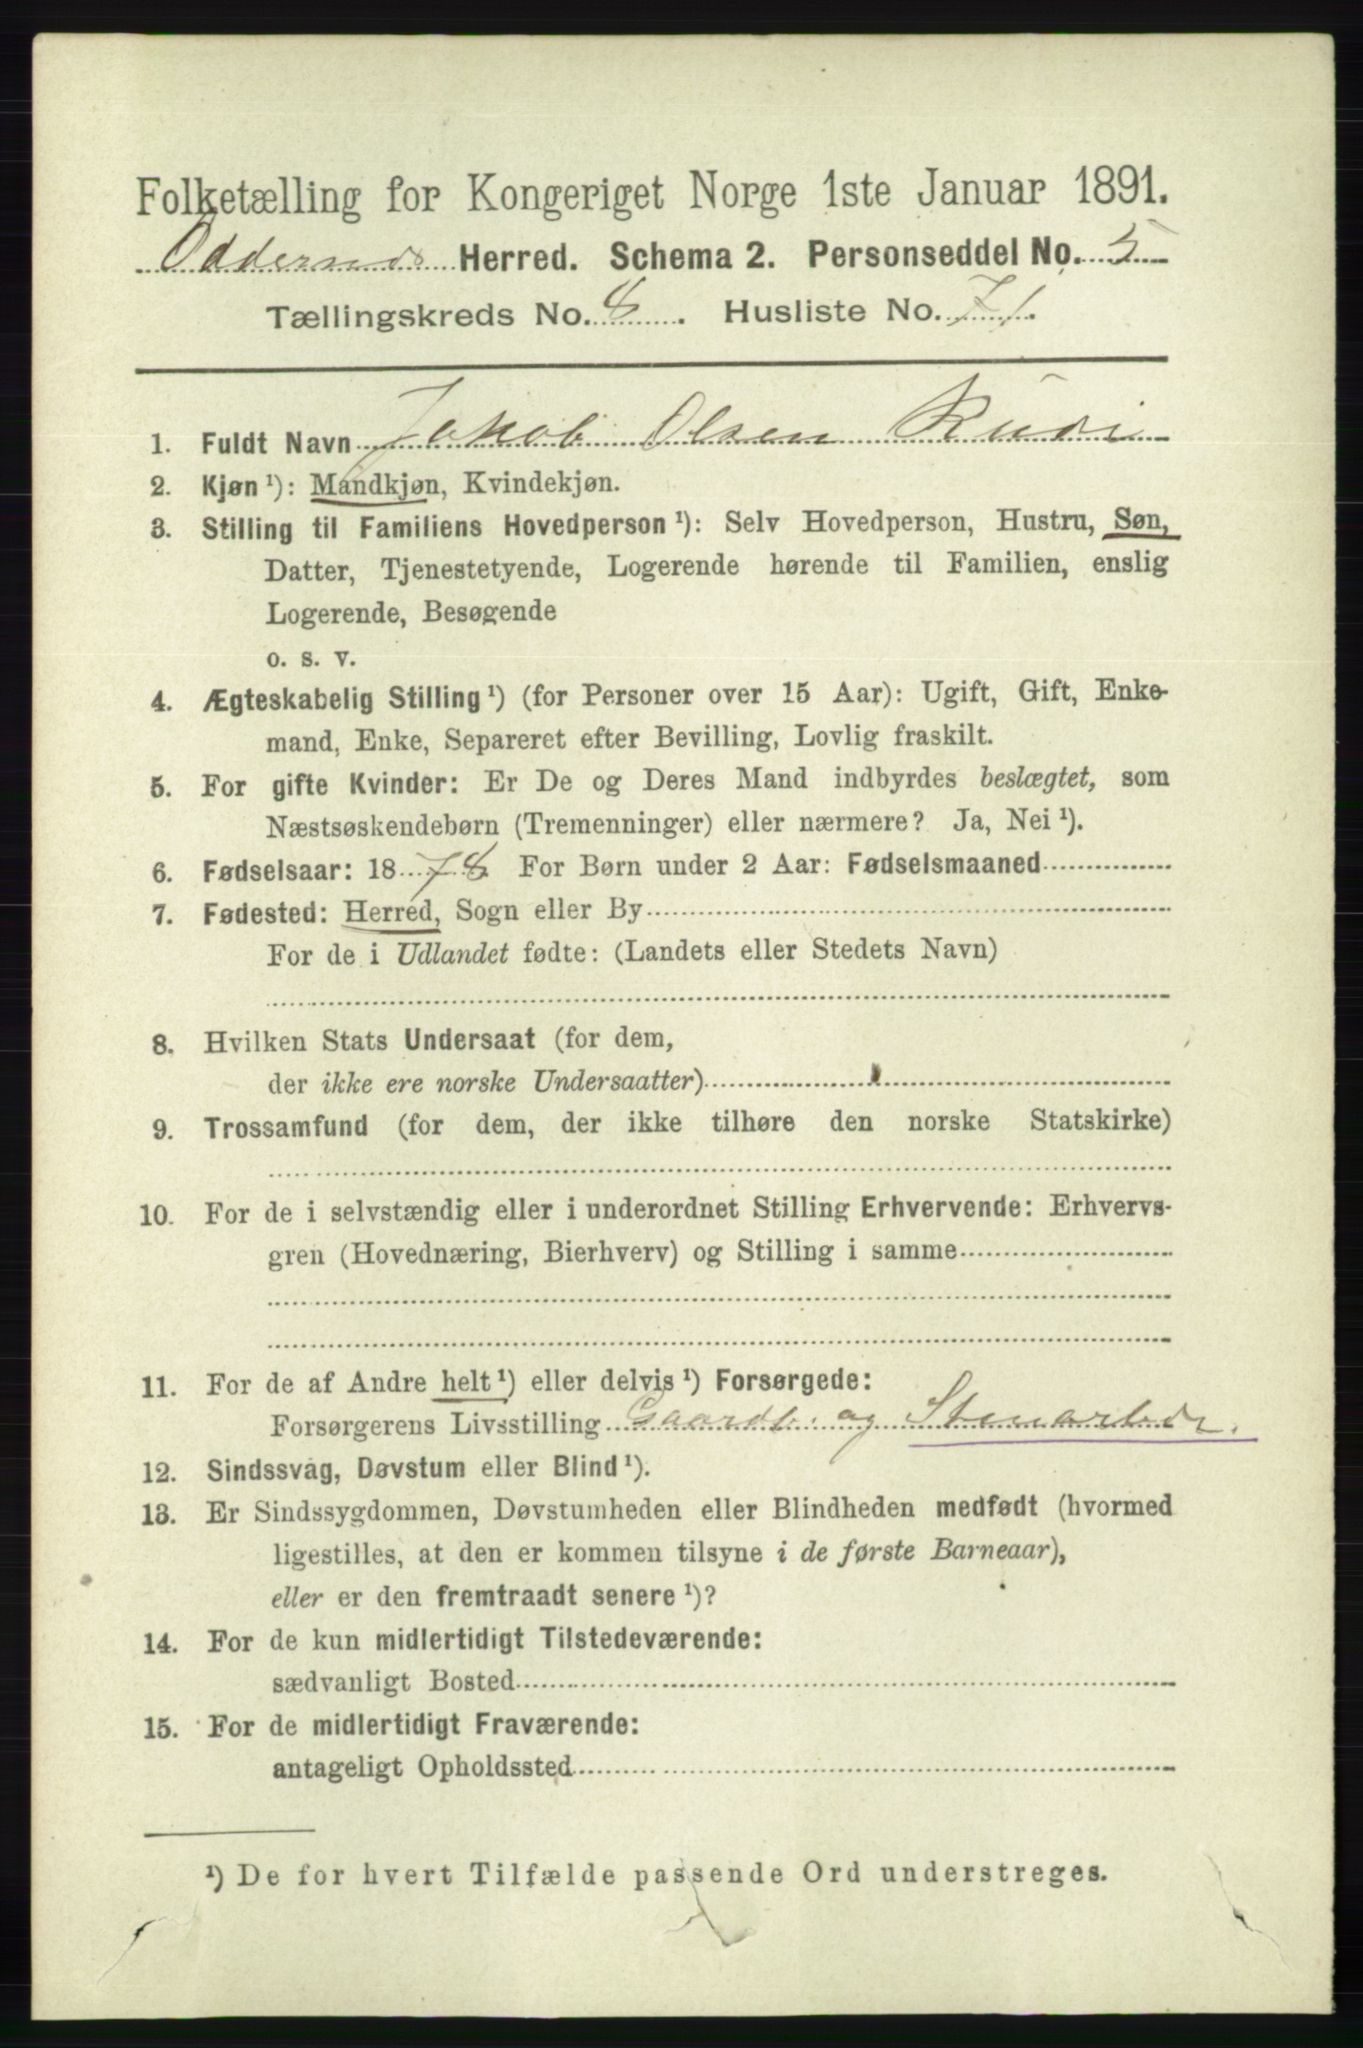 Folketælling for Kongeriget Norge 1ste Januar 1891.
Oddernes Herred. Schema 2. Personseddel No. 5
Tællingskreds No. 8. Husliste No. 71.
1. Fuldt Navn Jakob Olsen Rudi
2. Kjøn ¹): Mandkjøn, Kvindekjøn.
3. Stilling til Familiens Hovedperson ¹): Selv Hovedperson, Hustru, Søn,
Datter, Tjenestetyende, Logerende hørende til Familien, enslig
Logerende, Besøgende
o. s. v.
4. Ægteskabelig Stilling ¹) (for Personer over 15 Aar): Ugift, Gift, Enke-
mand, Enke, Separeret efter Bevilling, Lovlig fraskilt.
5. For gifte Kvinder: Er De og Deres Mand indbyrdes beslægtet, som
Næstsøskendebørn (Tremenninger) eller nærmere? Ja, Nei ¹).
6. Fødselsaar: 1878 For Børn under 2 Aar: Fødselsmaaned
7. Fødested: Herred, Sogn eller By
For de i Udlandet fødte: (Landets eller Stedets Navn)
8. Hvilken Stats Undersaat (for dem,
der ikke ere norske Undersaatter)
9. Trossamfund (for dem, der ikke tilhøre den norske Statskirke)
10. For de i selvstændig eller i underordnet Stilling Erhvervende: Erhvervs-
gren (Hovednæring, Bierhverv) og Stilling i samme
11. For de af Andre helt ¹) eller delvis ¹) Forsørgede:
Forsørgerens Livsstilling Gaardb. og Stenarbeder.
12. Sindssvag, Døvstum eller Blind ¹).
13. Er Sindssygdommen, Døvstumheden eller Blindheden medfødt (hvormed
ligestilles, at den er kommen tilsyne i de første Barneaar),
eller er den fremtraadt senere ¹)?
14. For de kun midlertidigt Tilstedeværende:
sædvanligt Bosted
15. For de midlertidigt Fraværende:
antageligt Opholdssted
¹) De for hvert Tilfælde passende Ord understreges.